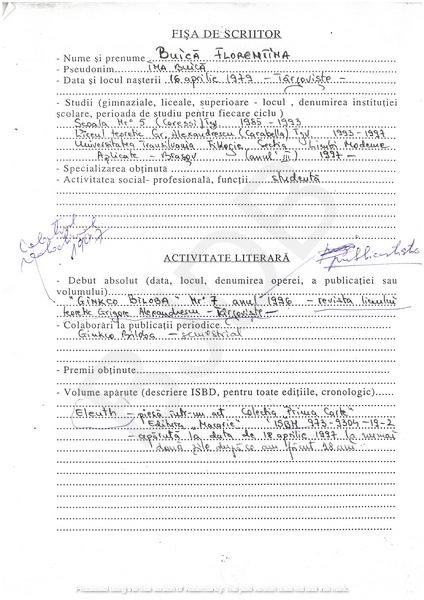 FIŞA DE SCRIITOR
- Nume şi prenume Buică FLORENTINA
- Pseudonim IMA BUICĂ
- Data şi locul naşterii 16 aprilie 1979 - Târgovişte -
- Studii (gimnaziale, liceale, superioare - locul , denumirea instituţiei
şcolare, perioada de studiu pentru fiecare ciclu )
Şcoala Nr. 5 (Coressi) Tgv 1985 - 1993
Liceul teoretic Gr. Alexandrescu (Carabella) Tgv 1993-1997
Universitatea Transilvania Filologie Secţia Limbi Moderne
Aplicate - Braşov (anul III) 1997 -
- Specializarea obţinută
- Activitatea social- profesională, funcţii studentă
1997
publicistic
ACTIVITATE LITERARĂ
- Debut absolut (data, locul, denumirea operei, a publicaţiei sau
volumului)
"GINKCO BILOBA" Nr. 7 anul 1996 - revista liceului
teoretic Grigore Alexandrescu - Târgovişte -
- Colaborări la publicaţii periodice
Ginkco Biloba - semestrial
- Premii obţinute
- Volume apărute (descriere ISBD, pentru toate ediţiile, cronologic)
Eleuth - piesă într-un act Colecţia "Prima Carte"
Editura "Macarie" ISBN 973-9304-19-2
- apărută la data de 18 aprilie 1997 la numai
două zile după ce am făcut 18 ani